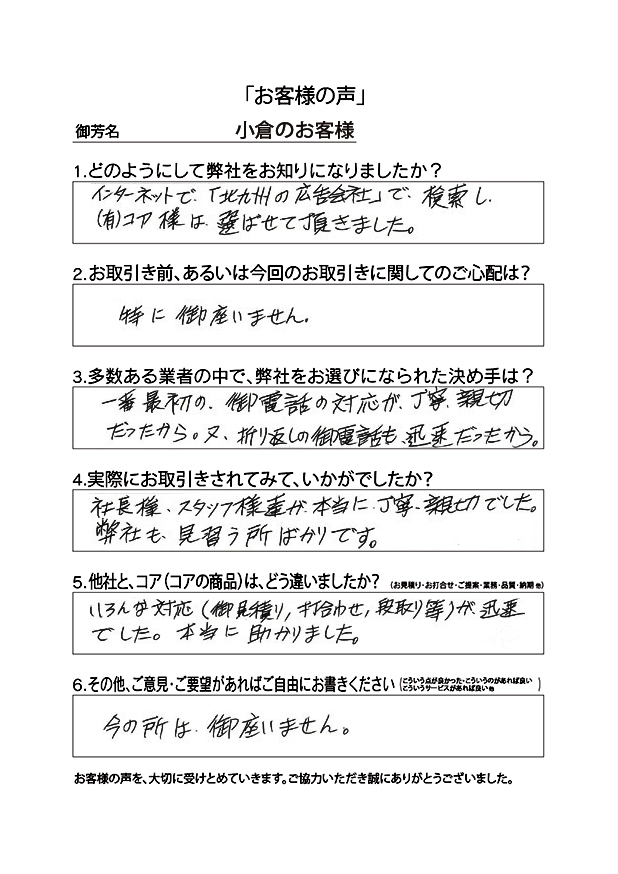 「お客様の声」
御芳名 小倉のお客様
1.どのようにして弊社をお知りになりましたか？
インターネットで、「北九州の広告会社」で、検索し、
(有)コア様は、選ばせて頂きました。
2.お取引き前、あるいは今回のお取引きに関してのご心配は？
特に御座いません。
3.多数ある業者の中で、弊社をお選びになられた決め手は？
一番最初の、御電話の対応が、丁寧、親切
だったから。又、折り返しの御電話も、迅速だったから。
4.実際にお取引きされてみて、いかがでしたか？
社長様、スタッフ様達が、本当に、丁寧、親切でした。
弊社も、見習う所ばかりです。
5.他社と、コア(コアの商品)は、どう違いましたか？ (お見積り・お打合せ・ご提案・業務・品質・納期 他)
いろんな対応(御見積り,打合わせ,段取り等)が、迅速
でした。本当に助かりました。
6.その他、ご意見・ご要望があればご自由にお書きください (こういう点が良かった・こういうのがあれば良い
こういうサービスがあれば良い 他 )
今の所は、御座いません。
お客様の声を、大切に受けとめていきます。ご協力いただき誠にありがとうございました。